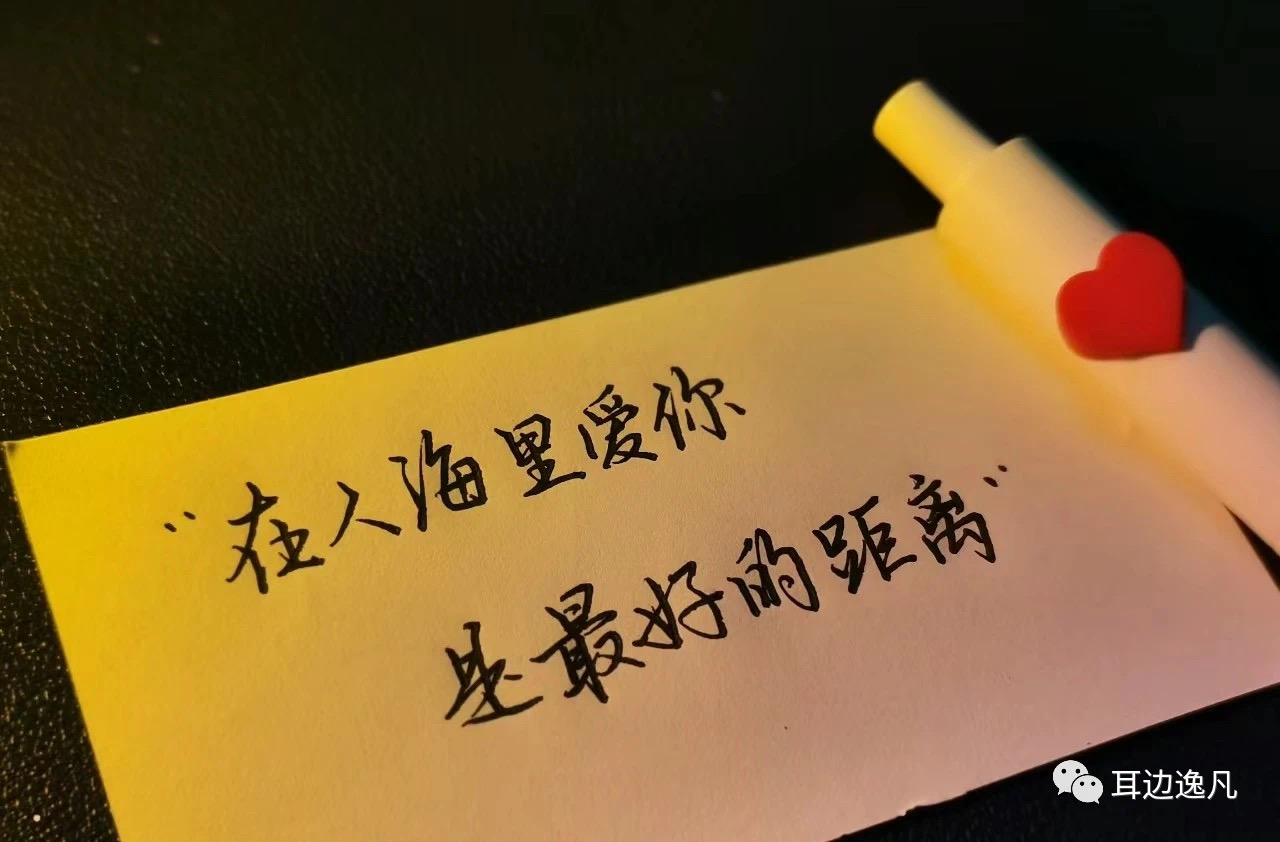 “在人海里爱你
是最好的距离”
耳边逸凡